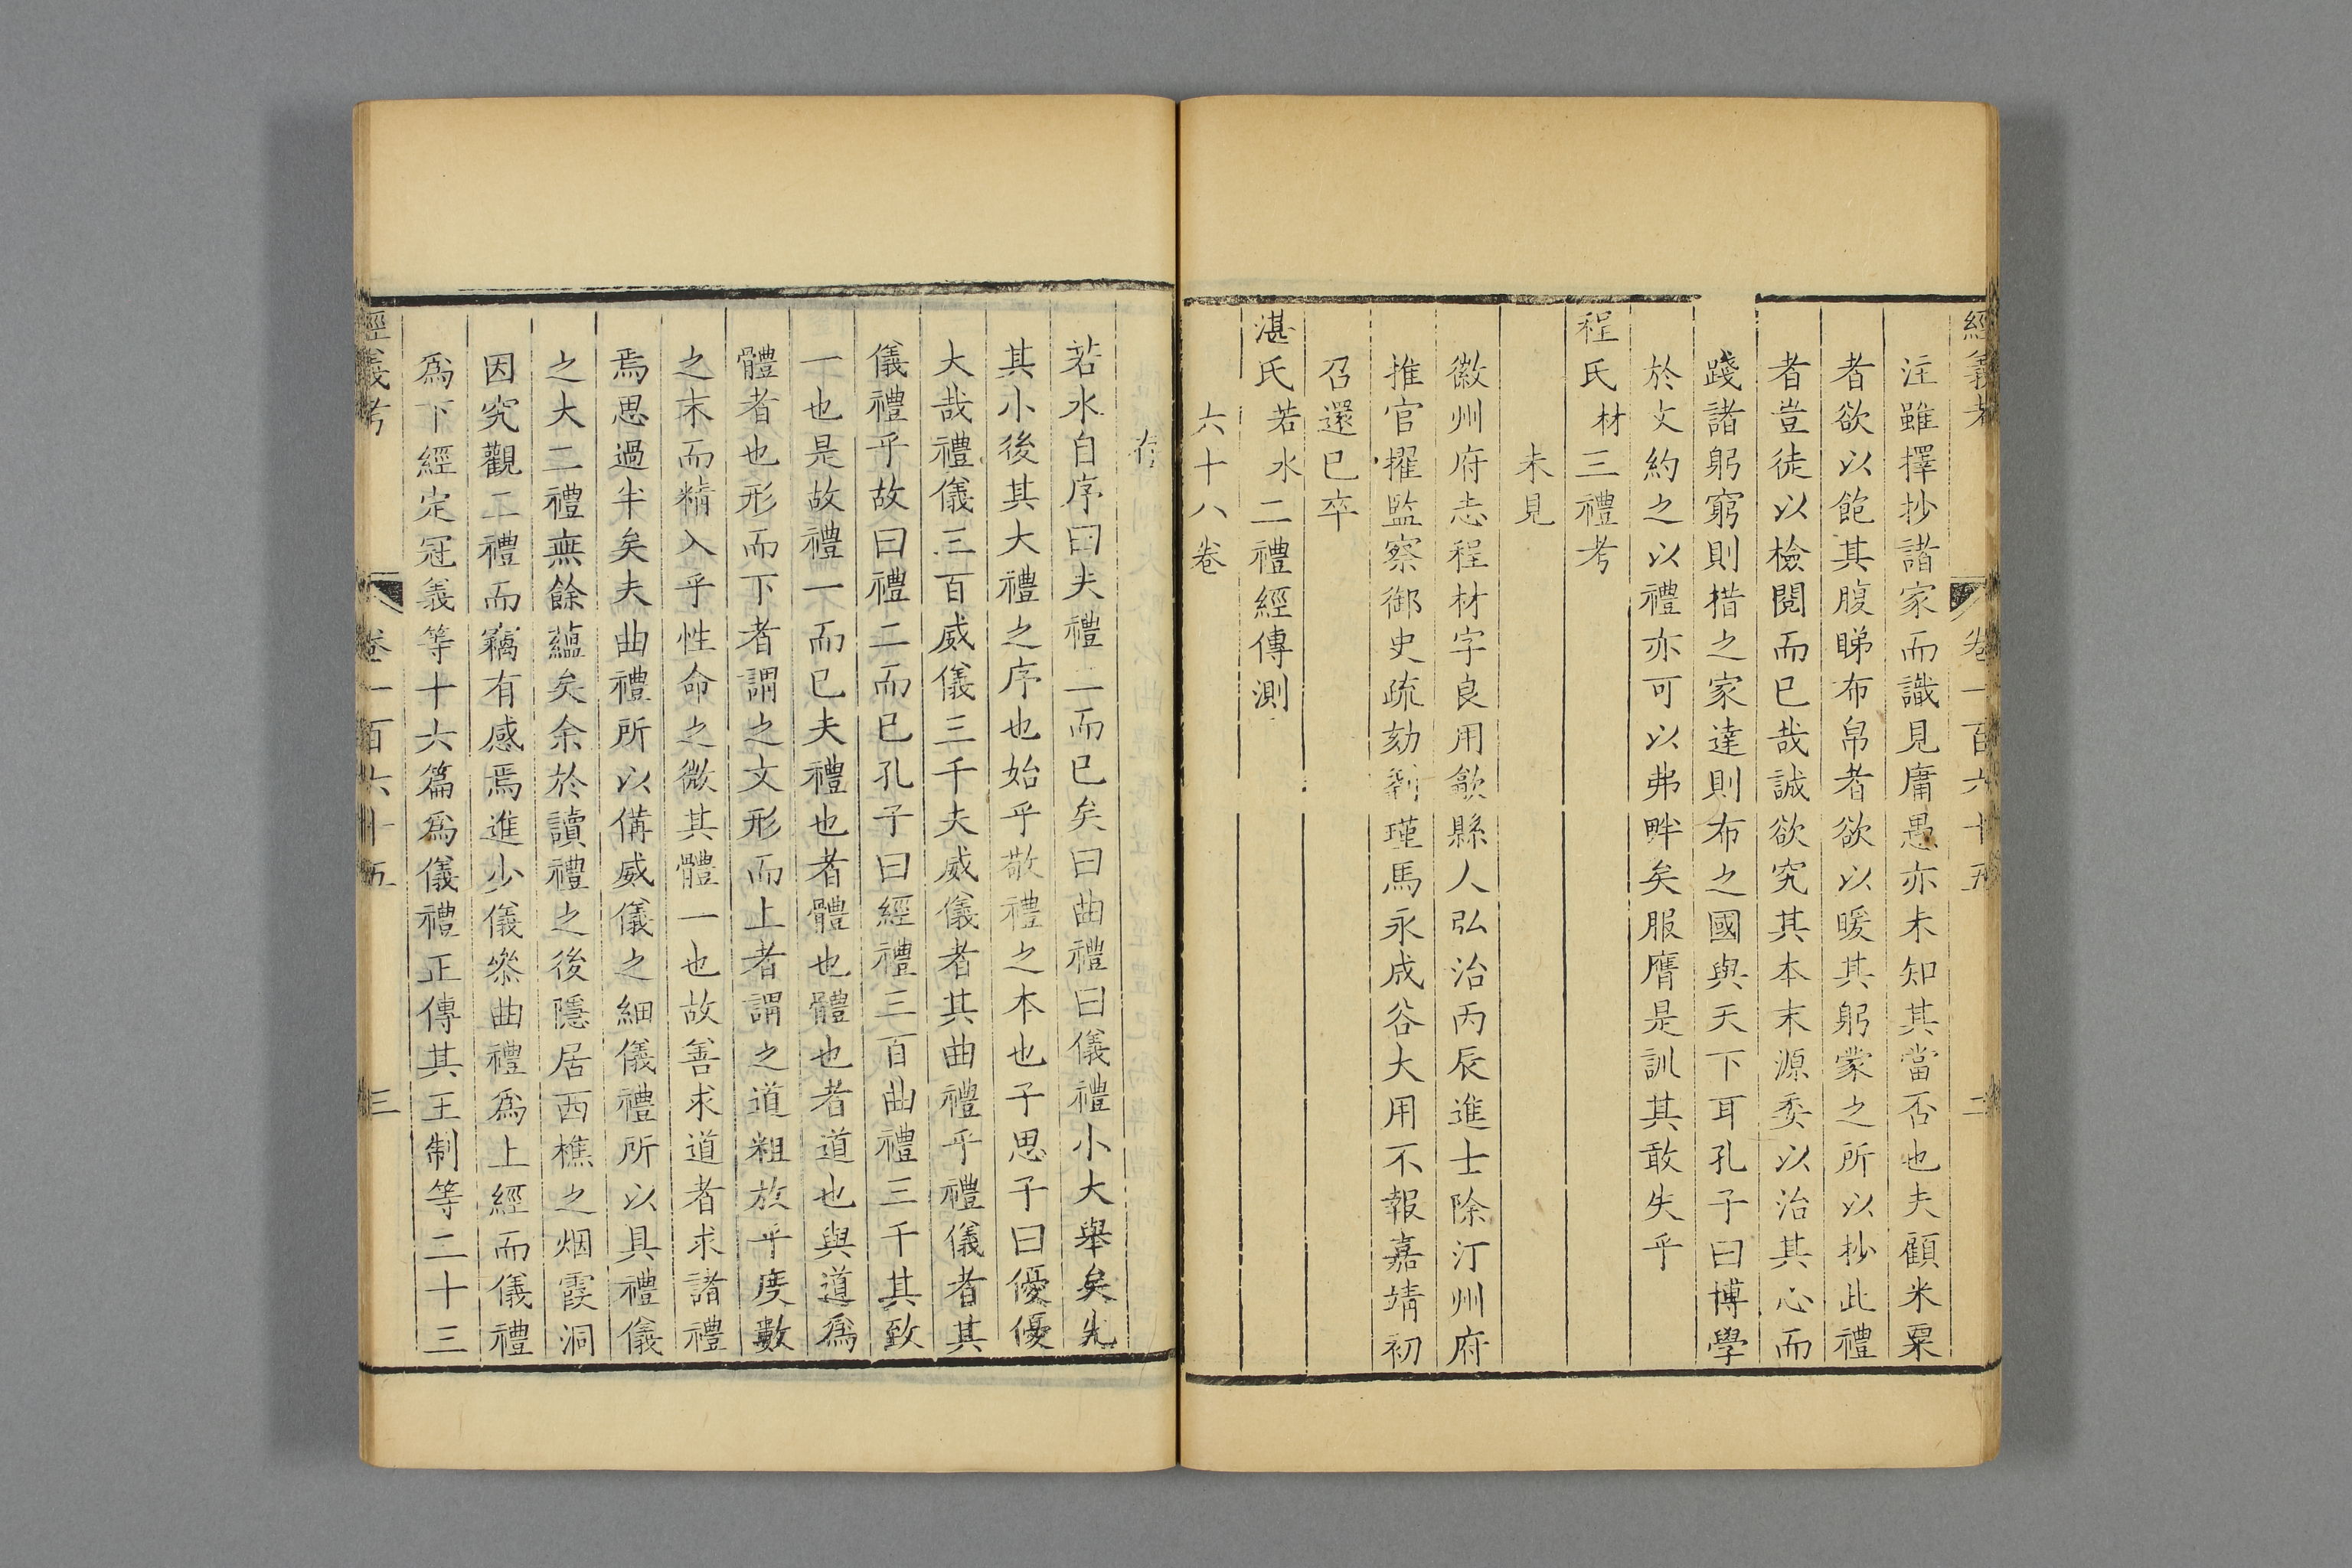 經義考 卷一百六十五 二
注雖擇抄諸家而識見庸愚亦未知其當否也夫顧米粟
者欲以飽其腹睇布帛者欲以暖其躬蒙之所以抄此禮
者豈徒以檢閱而已哉誠欲究其本末源委以治其心而
踐諸躬窮則措之家達則布之國與天下耳孔子曰博學
於文約之以禮亦可以弗畔矣服膺是訓其敢失乎
程氏材三禮考
未見
徽州府志程材字良用歙縣人弘治丙辰進士除汀州府
推官擢監察御史疏劾劉瑾馬永成谷大用不報嘉靖初
召還已卒
湛氏若水二禮經傳測
六十八卷
存
若水自序曰夫禮二而已矣曰曲禮曰儀禮小大舉矣先
其小後其大禮之序也始乎敬禮之本也子思子曰優優
大哉禮儀三百威儀三千夫威儀者其曲禮乎禮儀者其
儀禮乎故曰禮二而已孔子曰經禮三百曲禮三千其致
一也是故禮一而已夫禮也者體也體也者道也與道爲
體者也形而下者謂之文形而上者謂之道粗放乎度數
之末而精入乎性命之微其體一也故善求道者求諸禮
焉思過半矣夫曲禮所以備威儀之細儀禮所以具禮儀
之大二禮無餘蘊矣余於讀禮之後隱居西樵之烟霞洞
因究觀二禮而竊有感焉進少儀叅曲禮爲上經而儀禮
爲下經定冠義等十六篇爲儀禮正傳其王制等二十三
經義考 卷一百六十五 三